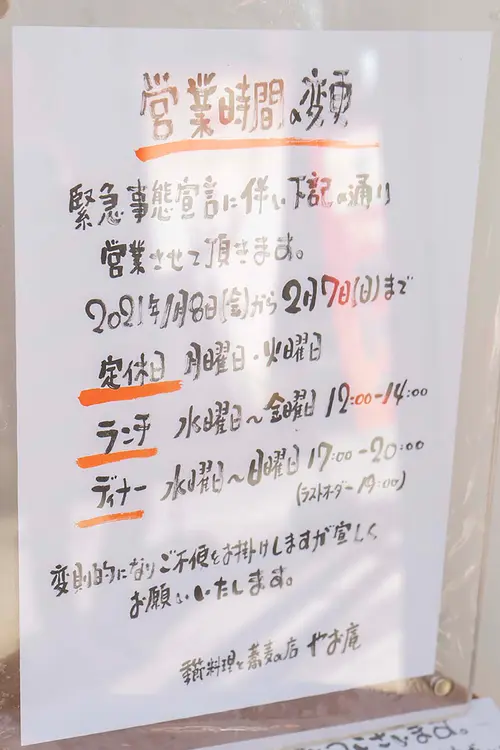 営業時間の変更
緊急事態宣言に伴い下記の通り
営業させて頂きます。
2021年1月8日(金)から2月7日(日)まで
定休日 月曜日・火曜日
ランチ 水曜日〜金曜日 12:00-14:00
ディナー 水曜日〜日曜日 17:00-20:00
(ラストオーダー 19:00)
変則的になりご不便をお掛けしますが宜しく
お願いいたします。
季節料理と蕎麦の店 やお庵
ざいます。